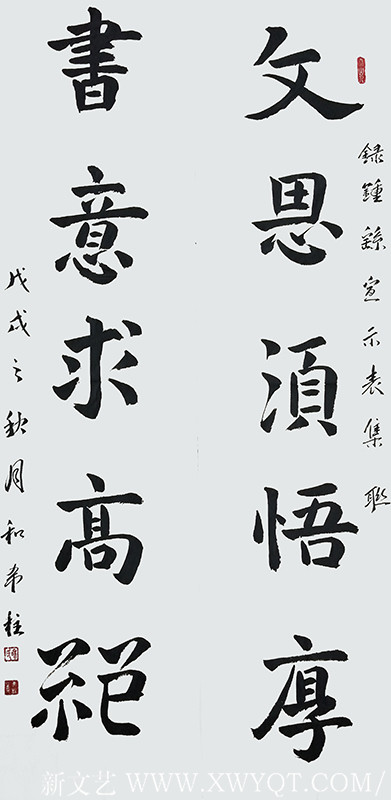 録鍾繇宣示表集聯
文思須悟厚
書意求高
戊戌之秋月和柱
新文艺 WWW.XWYQT.COM/